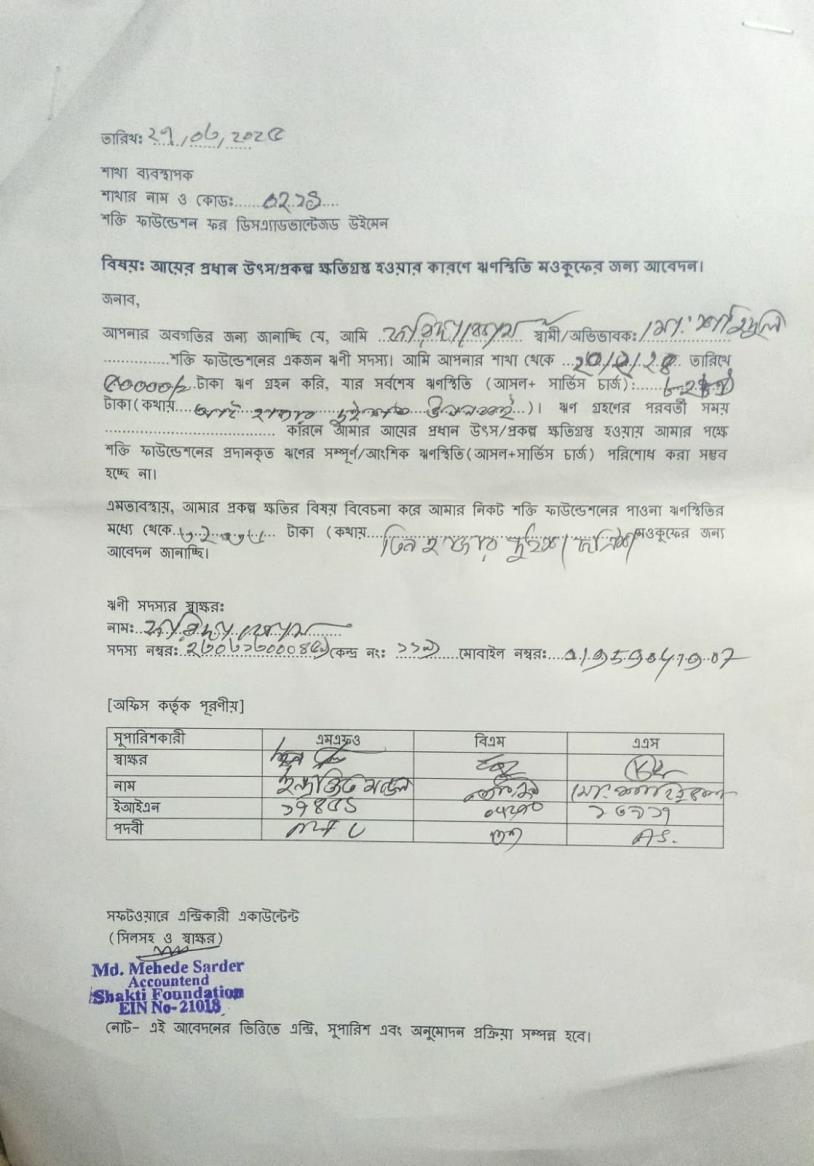 তারিখ: ২৭/০৮/২০২৫
শাখা ব্যবস্থাপক
শাখার নাম ও কোড:......
শক্তি ফাউন্ডেশন ফর ডিসএ্যাডভান্টেজড উইমেন
বিষয়: আয়ের প্রধান উৎস/প্রকল্প ক্ষতিগ্রস্ত হওয়ার কারণে ঋণস্থিতি মওকুফের জন্য আবেদন।
জনাব,
আপনার অবগতির জন্য জানাচ্ছি যে, আমি ফরিদা বেগম স্বামী/অভিভাবক:
..............শক্তি ফাউন্ডেশনের একজন ঋণী সদস্য। আমি আপনার শাখা থেকে ... তারিখে
৫০০০০/= টাকা ঋণ গ্রহন করি, যার সর্বশেষ ঋণস্থিতি (আসল+ সার্ভিস চার্জ):......
টাকা (কথায়....আট হাজার দুইশত উননব্বই...)। ঋণ গ্রহণের পরবর্তী সময়
.................................. কারনে আমার আয়ের প্রধান উৎস/প্রকল্প ক্ষতিগ্রস্ত হওয়ায় আমার পক্ষে
শক্তি ফাউন্ডেশনের প্রদানকৃত ঋণের সম্পূর্ণ/আংশিক ঋণস্থিতি(আসল+সার্ভিস চার্জ) পরিশোধ করা সম্ভব
হচ্ছে না।
এমতাবস্থায়, আমার প্রকল্প ক্ষতির বিষয় বিবেচনা করে আমার নিকট শক্তি ফাউন্ডেশনের পাওনা ঋণস্থিতির
মধ্যে থেকে...... টাকা (কথায়....তিন হাজার দুইশত মওকুফের জন্য
আবেদন জানাচ্ছি।
ঋণী সদস্যর স্বাক্ষর:
নাম:..ফরিদা বেগম
সদস্য নম্বর: কেন্দ্র নং: মোবাইল নম্বর:...01959047907
[অফিস কর্তৃক পূরণীয়]
সুপারিশকারী এমএফও বিএম এএস
স্বাক্ষর
নাম ইন্দ্রজিত মন্ডল
ইআইএন
পদবী AS.
সফটওয়্যারে এন্ট্রিকারী একাউন্টেন্ট
(সিলসহ ও স্বাক্ষর)
Md. Mehede Sarder
Accountend
Shakti Foundation
EIN No-21018
নোট- এই আবেদনের ভিত্তিতে এন্ট্রি, সুপারিশ এবং অনুমোদন প্রক্রিয়া সম্পন্ন হবে।